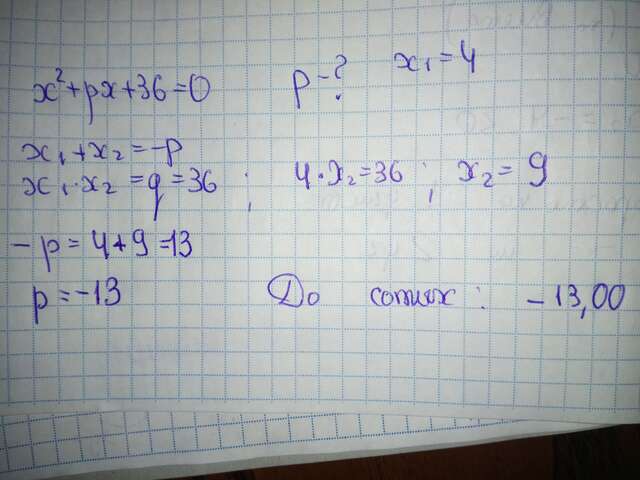 x² + px + 36 = 0 p - ? x₁ = 4
x₁ + x₂ = -p
x₁ · x₂ = q = 36 ; 4 · x₂ = 36 ; x₂ = 9
- p = 4 + 9 = 13
p = -13 До сотых : - 13,00